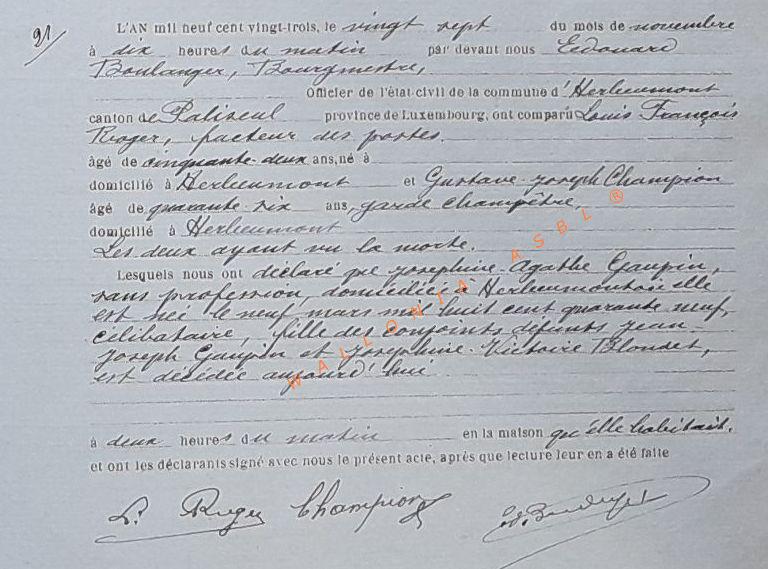 21/
L'AN mil neuf cent vingt-trois, le vingt sept du mois de novembre
à dix heures du matin par devant nous Edouard
Boulanger, Bourgmestre,
Officier de l'état-civil de la commune d'Herbeumont
canton de Paliseul province de Luxembourg, ont comparu Louis François
Roger, facteur des postes.
âgé de cinquante-deux ans, né à
domicilié à Herbeumont et Gustave-Joseph Champion
âgé de quarante-six ans, garde champêtre,
domicilié à Herbeumont
Les deux ayant vu la morte.
Lesquels nous ont déclaré que Joséphine-Agathe Gaupin,
sans profession, domiciliée à Herbeumont où elle
est née le neuf mars mil huit cent quarante neuf,
célibataire, fille des conjoints défunts Jean-
Joseph Gaupin et Joséphine-Victoire Blondet,
est décédée aujourd'hui
à deux heures du matin en la maison qu'elle habitait.
et ont les déclarants signé avec nous le présent acte, après que lecture leur en a été faite
L. Roger Champion
WALLONIA ASBL ®